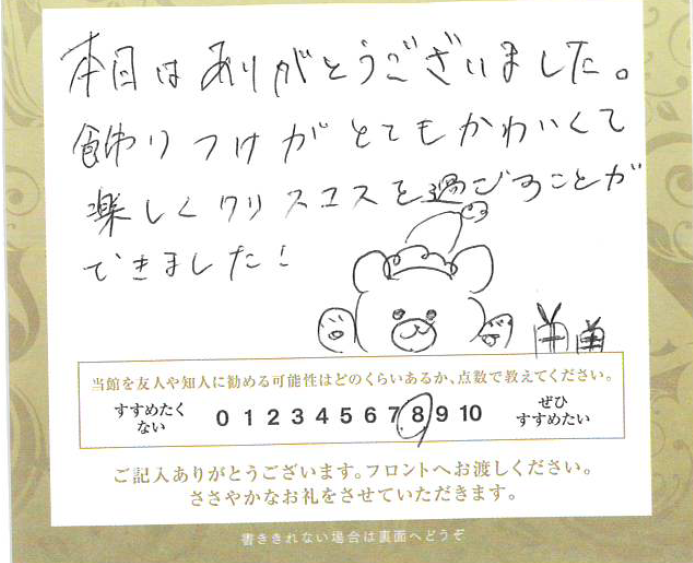 本日はありがとうございました。
飾りつけがとてもかわいくて
楽しくクリスマスを過ごすことが
できました!
当館を友人や知人に勧める可能性はどのくらいあるか、点数で教えてください。
すすめたく
ない
0 1 2 3 4 5 6 7 8 9 10
ぜひ
すすめたい
ご記入ありがとうございます。フロントへお渡しください。
ささやかなお礼をさせていただきます。
書ききれない場合は裏面へどうぞ